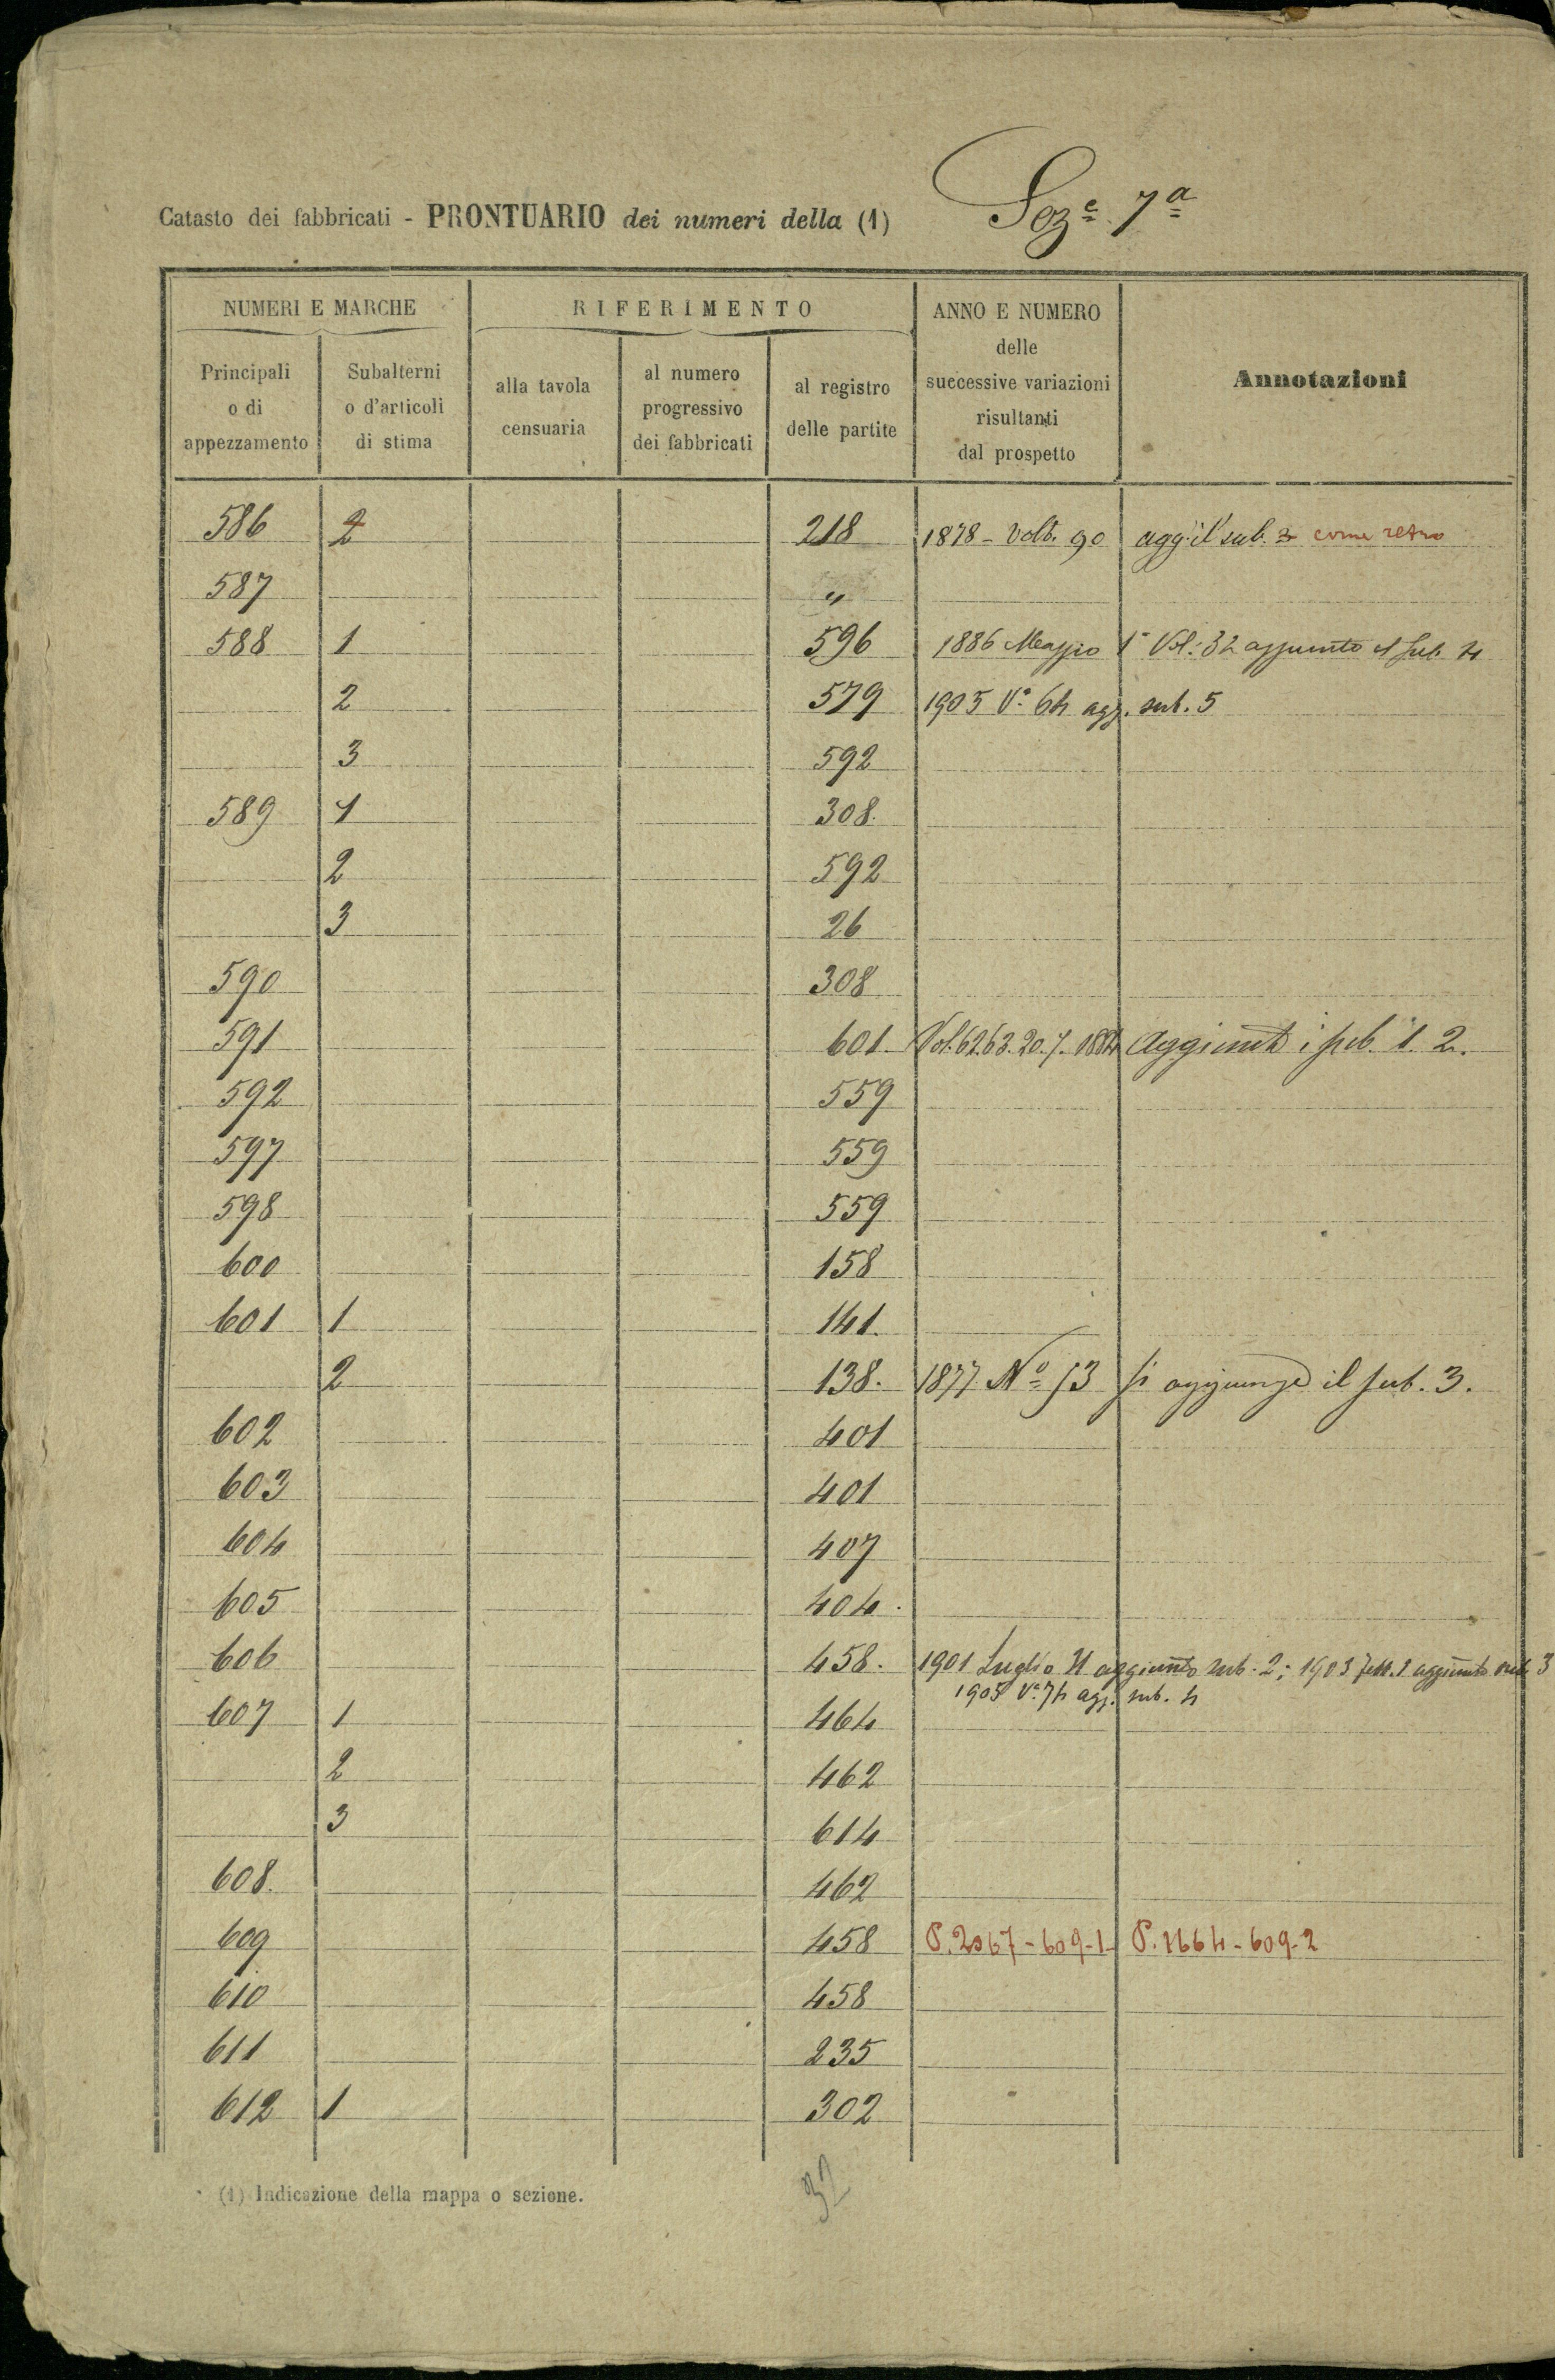 Catasto dei fabbricati - PRONTUARIO dei numeri della (1) Sez.e 7a
NUMERI E MARCHE
RIFERIMENTO
ANNO E NUMERO
delle
successive variazioni
risultanti
dal prospetto
Annotazioni
Principali
o di
appezzamento
Subalterni
o d'articoli
di stima
alla tavola
censuaria
al numero
progressivo
dei fabbricati
al registro
delle partite
586 2 218 1878 - Volt. 90 agg. il sub. 3 come retro
587 "
588 1 596 1886 Maggio 1° Vol: 32 aggiunto il sub 4
2 579 1905 V° 64 agg. sub. 5
3 592
589 1 308.
2 592
3 26
590 308
591 601. Vol. 62.63. 20.7. 1884 Aggiunti i sub. 1. 2.
592 559
597 559
598 559
600 158
601 1 141.
2 138. 1877 No 53 si aggiunge il sub. 3.
602 401
603 401
604 407
605 404.
606 458. 1901 Luglio 21 aggiunto sub. 2; 1903 aggiunto sub. 3
1905 V° 74 agg. sub. 4
607 1 464
2 462
3 614
608. 462
609 458 P. 2067-609-1- P. 1664-609-2
610 458
611 235
612 1 302
(1) Indicazione della mappa o sezione.
32